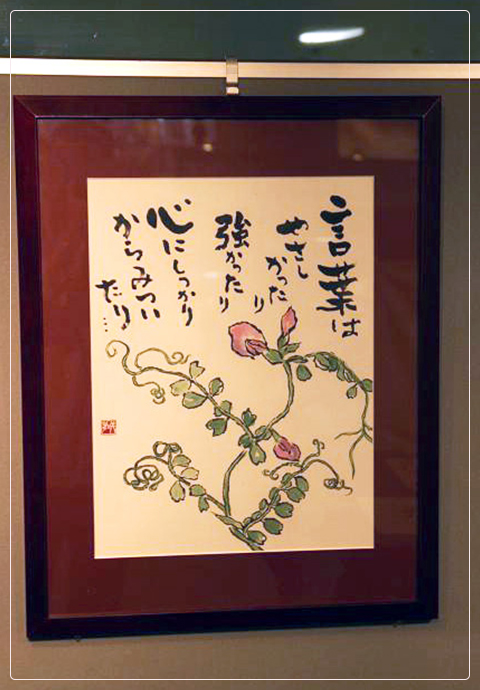 言葉は
やさし
かった
り
強かったり
心にしっかり
からみつい
たり…